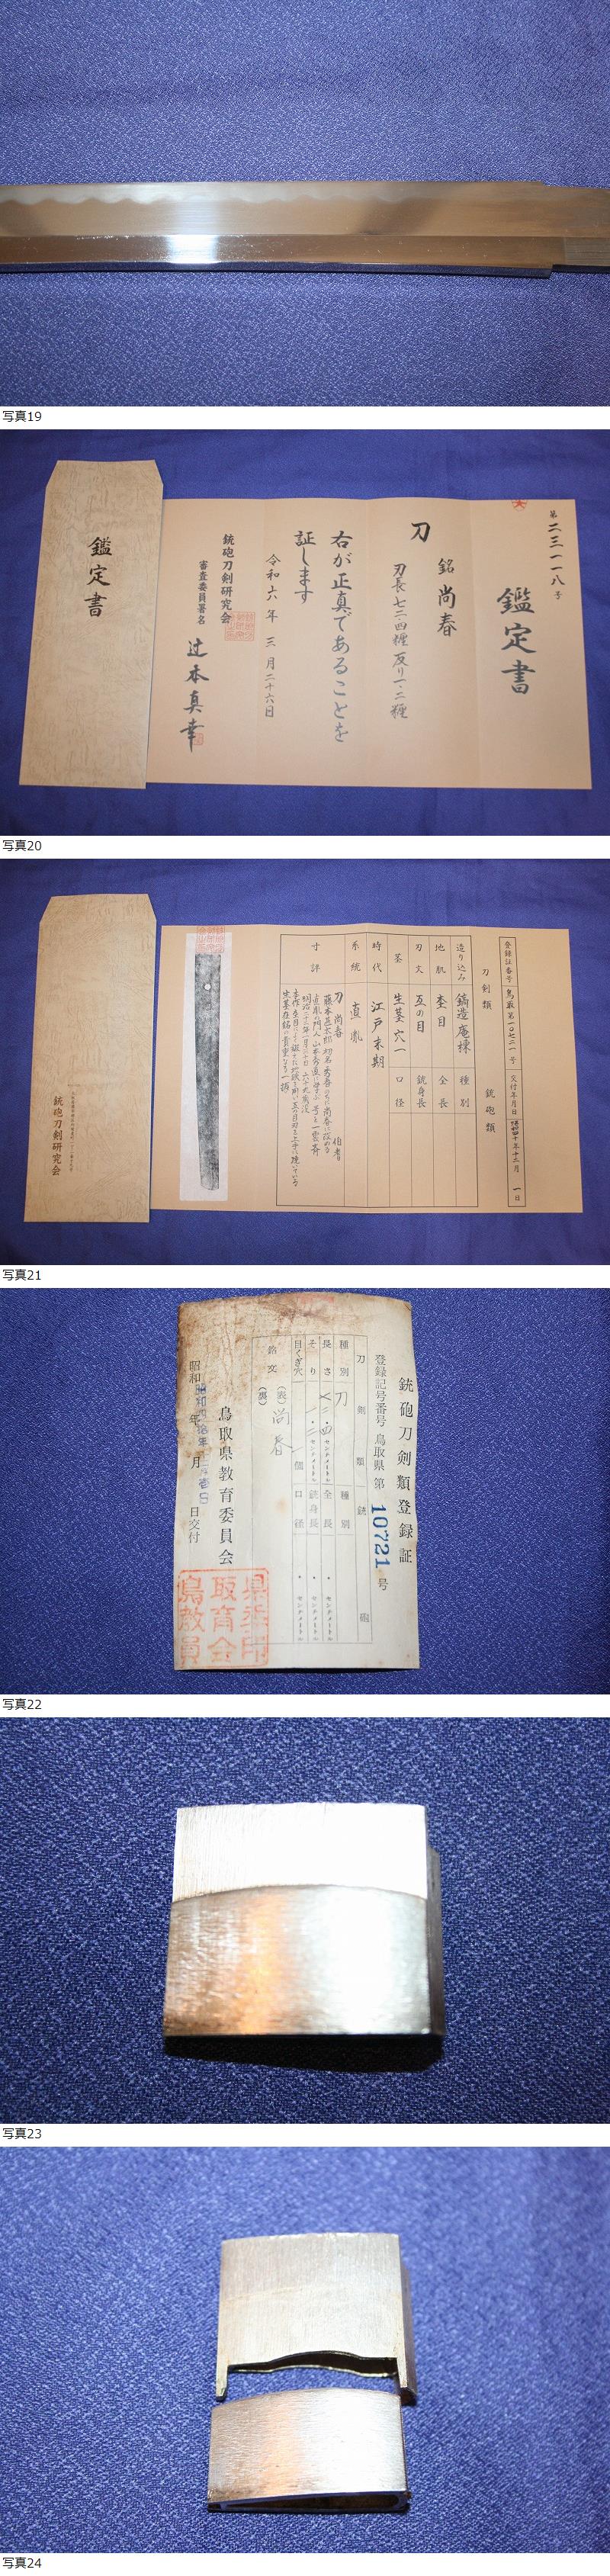 写真19
鑑定書
第二三一一八号
鑑定書
刀 銘 尚春
刃長七二.四糎 反り一.二糎
右が正真であることを
証します
令和六年 三月二十六日
銃砲刀剣研究会
審査委員署名 辻本真幸
写真20
銃砲刀剣研究会
登録証番号 鳥取 第一〇七二一号 交付年月日 昭和四十年十二月一日
刀剣類 銃砲類
造り込み 鎬造庵棟 種別
地肌 杢目 全長
刃文 互の目 銃身長
茎 生茎穴一 口径
時代 江戸末期
系統 直胤
寸評 刀 尚春 伯耆
写真21
銃砲刀剣類登録証
登録記号番号 鳥取県 第 10721 号
刀剣類 銃砲
種別 刀 種別
長さ 七二.四 センチメートル 全長 ・ センチメートル
そり 一.二 センチメートル 銃身長 ・ センチメートル
目くぎ穴 一個 口径 ・ センチメートル
銘文 (表) 尚春
(裏)
鳥取県教育委員会
昭和 年 月 日交付
写真22
写真23
写真24